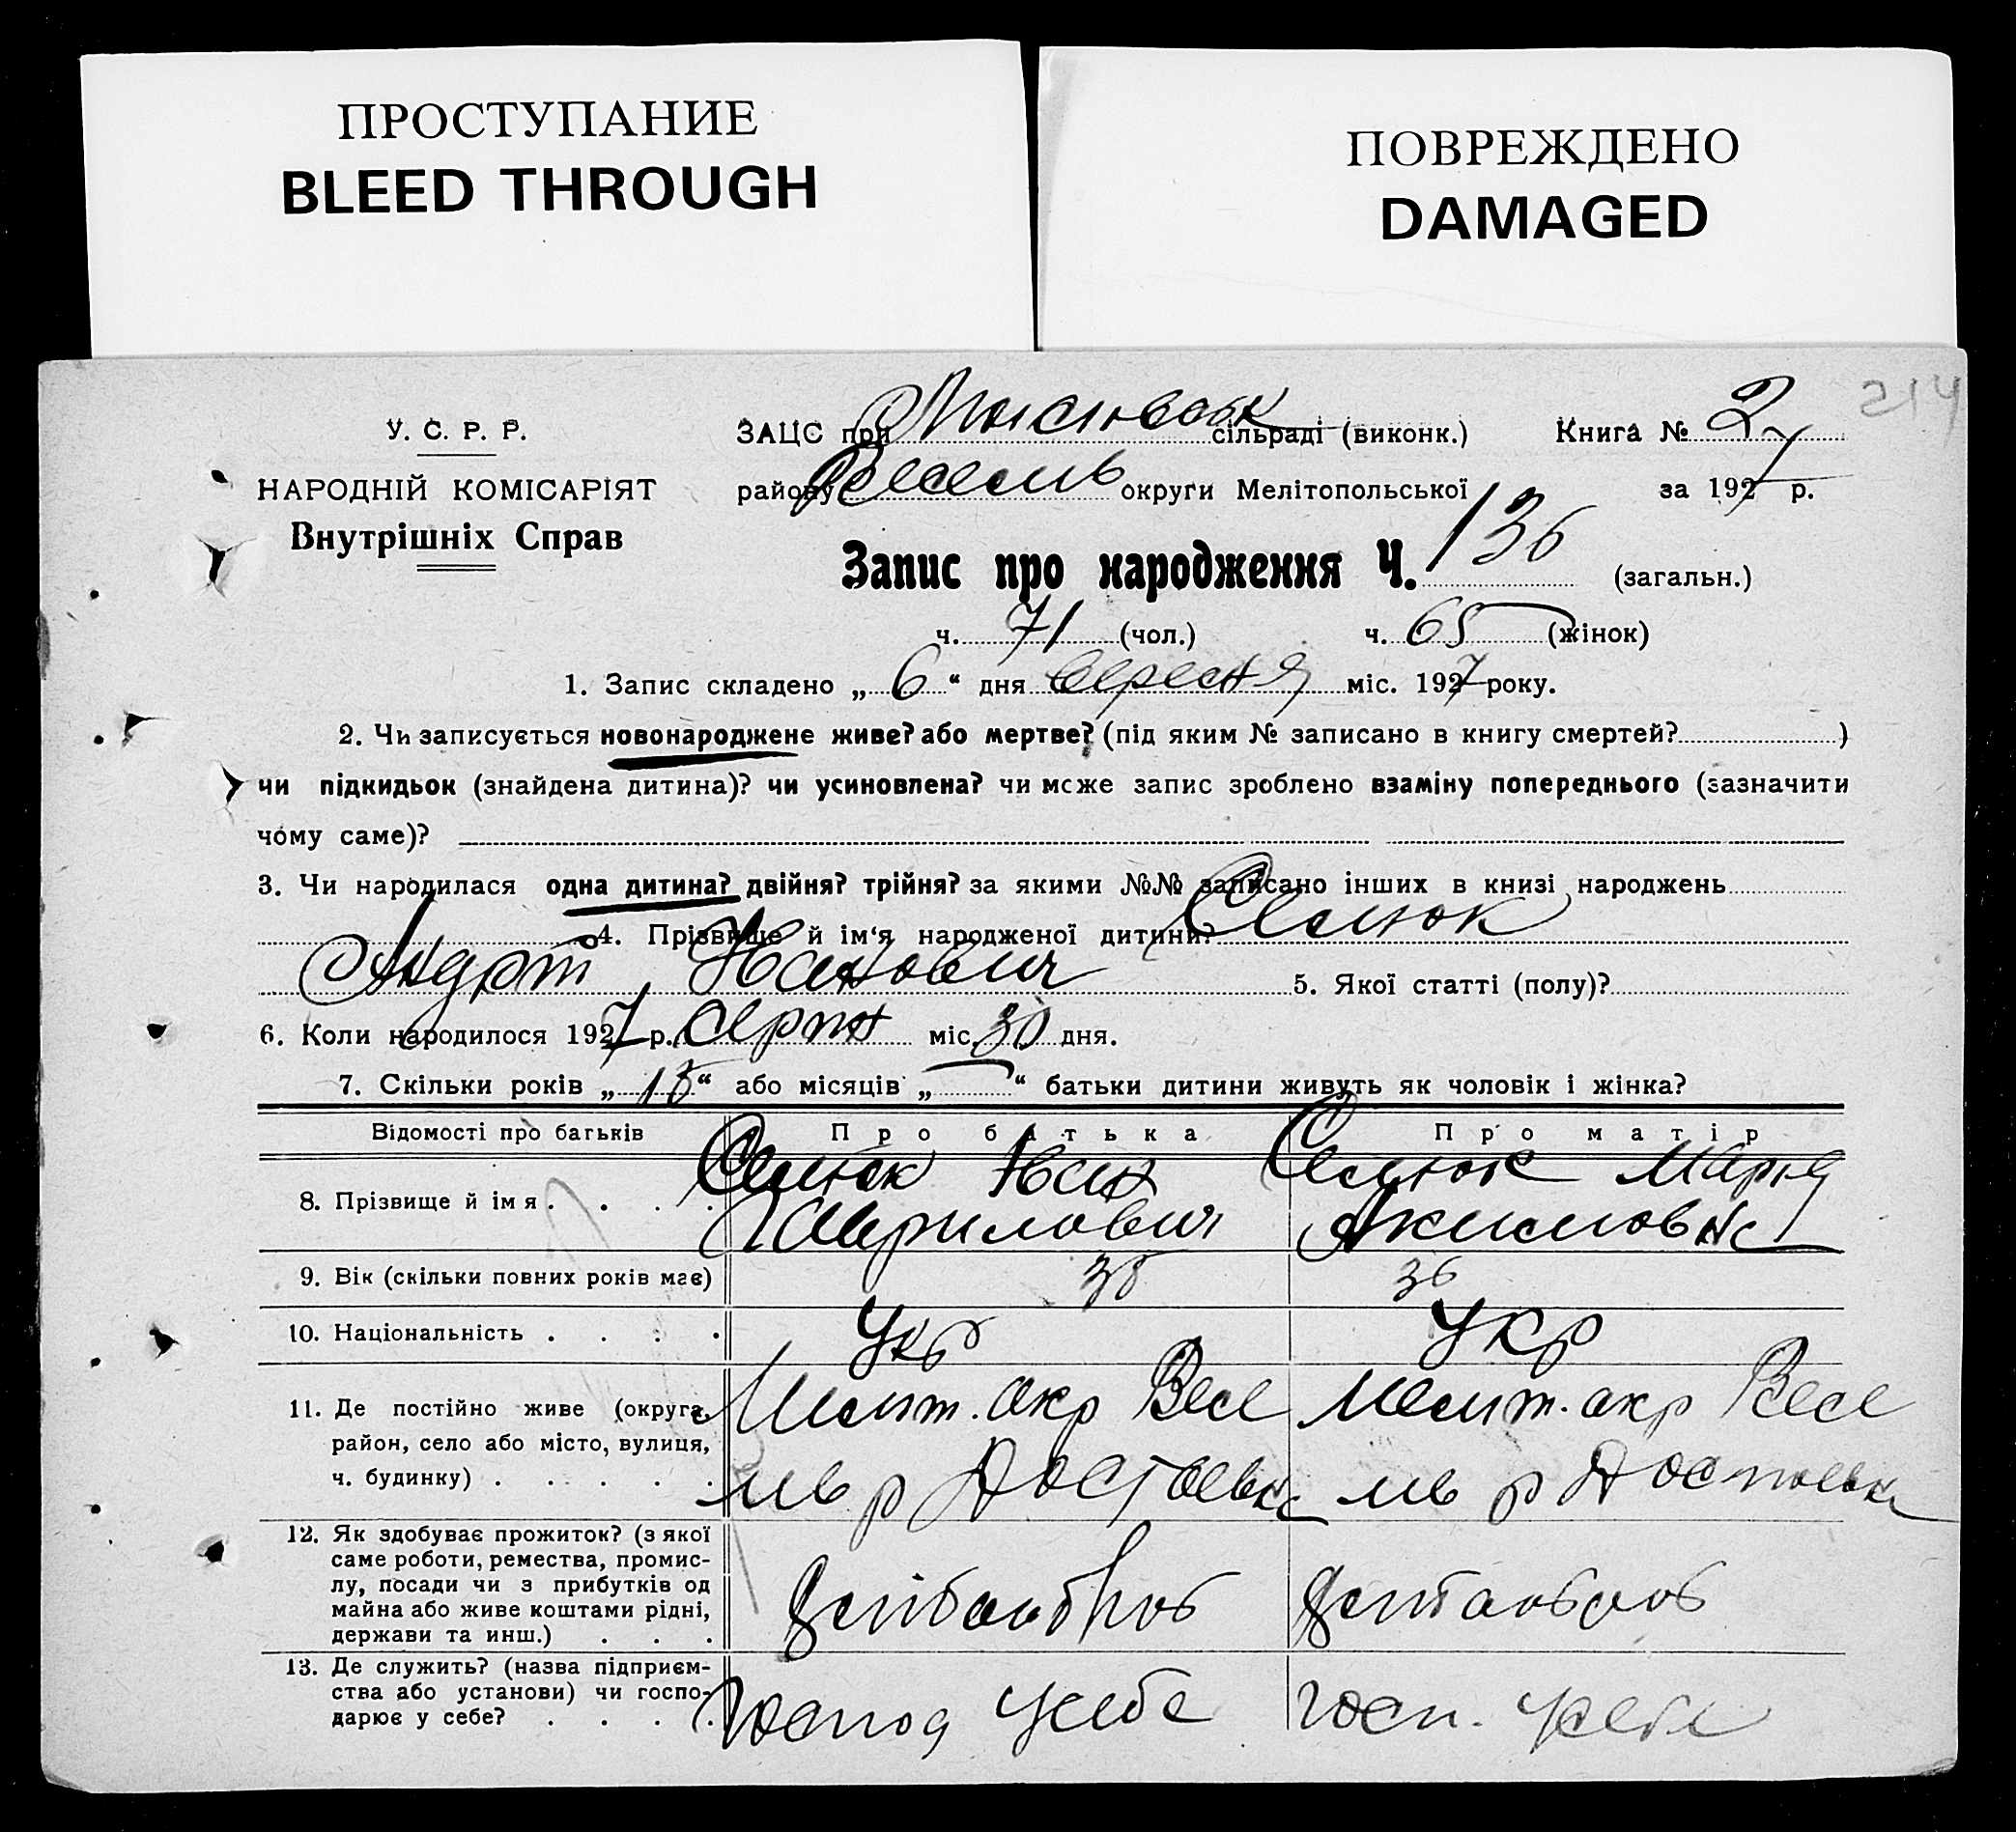 ПРОСТУПАНИЕ
BLEED THROUGH
ПОВРЕЖДЕНО
DAMAGED
214
У. С. Р. Р.
НАРОДНІЙ КОМІСАРІЯТ
Внутрішніх Справ
ЗАЦС при сільраді (виконк.) Книга № 2
району Веселів округи Мелітопольської за 1927 р.
Запис про народження Ч. 136 (загальн.)
ч. 71 (чол.) ч. 65 (жінок)
1. Запис складено „ 6 “ дня вересня міс. 1927 року.
2. Чи записується новонароджене живе? або мертве? (під яким № записано в книгу смертей? )
чи підкидьок (знайдена дитина)? чи усиновлена? чи може запис зроблено взаміну попереднього (зазначити
чому саме)?
3. Чи народилася одна дитина? двійня? трійня? за якими №№ записано інших в книзі народжень
4. Прізвище й ім‘я народженої дитини? Семюк
Андрій Іванович 5. Якої статті (полу)?
6. Коли народилося 1927 р. серпн міс. 30 дня.
7. Скільки років „ 15 “ або місяців „ — “ батьки дитини живуть як чоловік і жінка?
Відомості про батьків Про батька Про матір
8. Прізвище й імя . . . . Семюк Іван Семюк Марія
Гаврилович Акимовна
9. Вік (скільки повних років має) 38 36
10. Національність . . . . Укр Укр
11. Де постійно живе (округа, Меліт. окр Весе Меліт. окр Весе
район, село або місто, вулиця,
ч. будинку) . . . . . лів р лів р
12. Як здобуває прожиток? (з якої
саме роботи, ремества, промис-
лу, посади чи з прибутків од
майна або живе коштами рідні,
держави та инш.) . . .
13. Де служить? (назва підприєм-
ства або установи) чи госпо-
дарює у себе? . . . . Господ усебе Госп. усебе